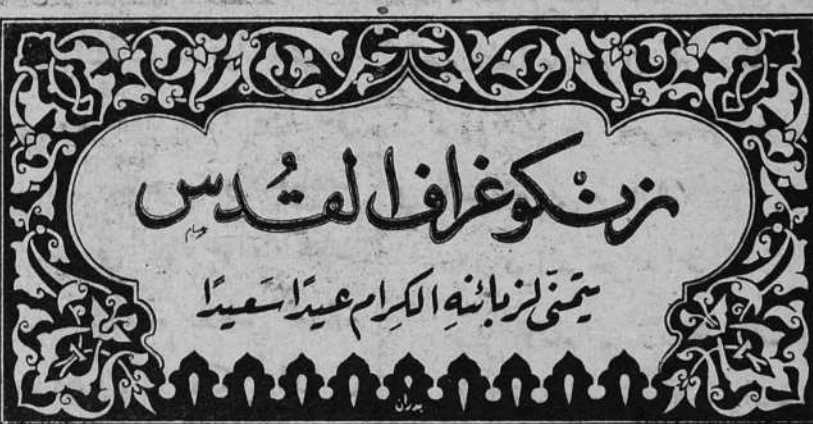 زنكوغراف القُدس
يتمنّى لزبائنهِ الكِرام عيدًا سَعيدًا
بدران